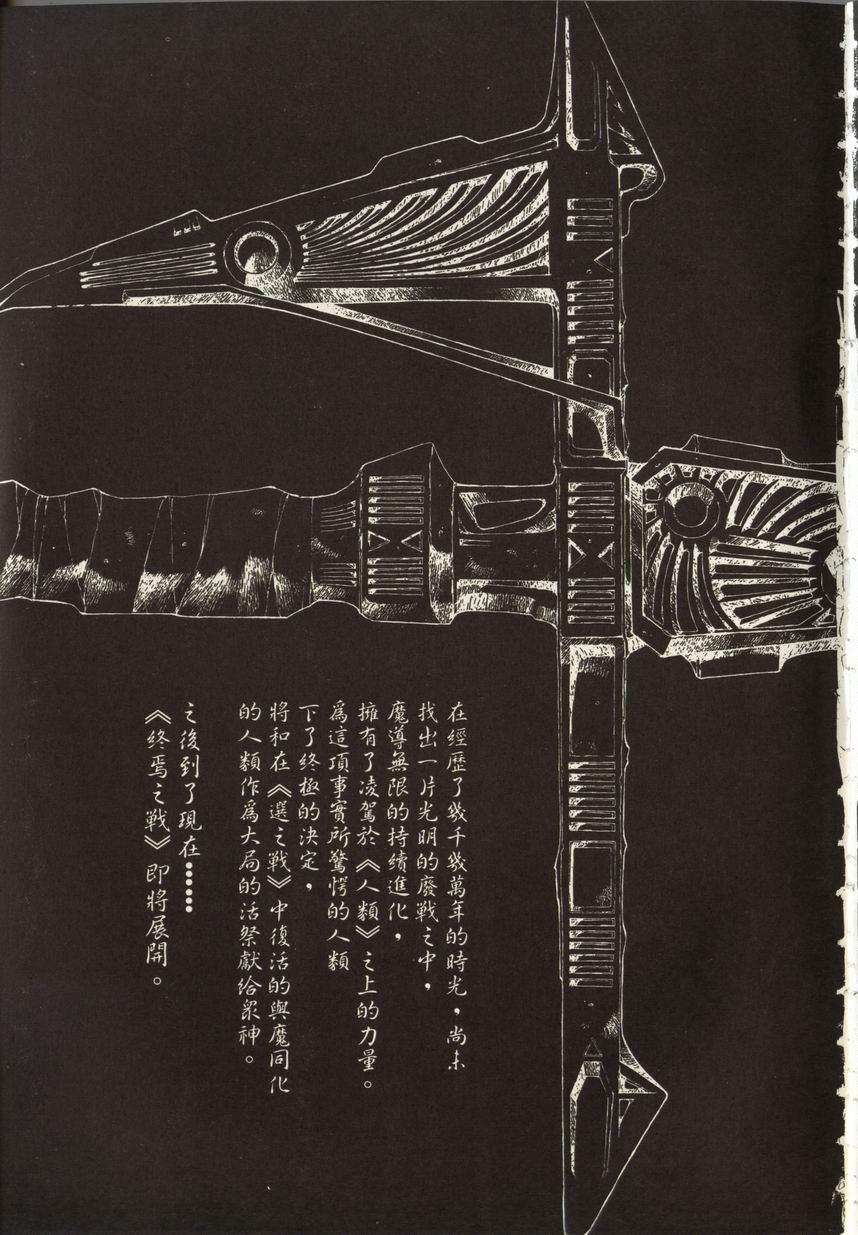 在經歷了幾千幾萬年的時光，尚未
找出一片光明的廢戰之中，
魔導無限的持續進化，
擁有了凌駕於《人類》之上的力量。
為這項事實所驚愕的人類
下了終極的決定，
將和在《選之戰》中復活的與魔同化
的人類作為大局的活祭獻給眾神。
之後到了現在⋯⋯
《終焉之戰》即將展開。